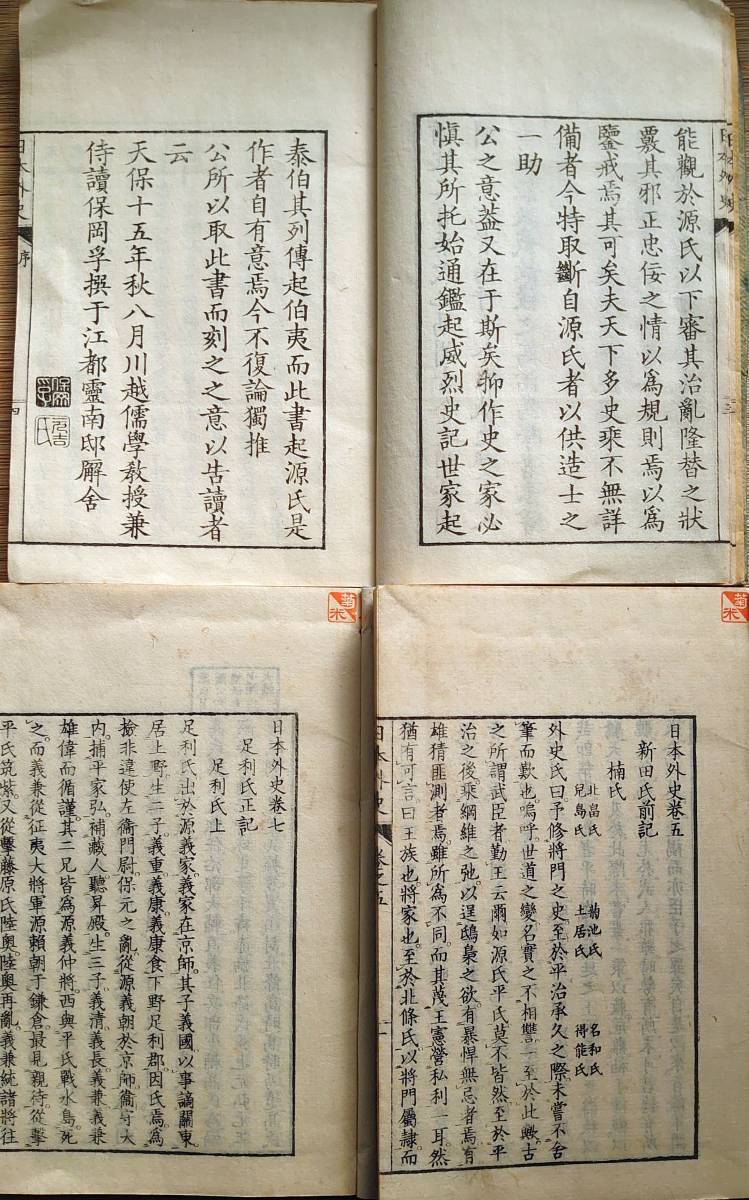 能觀於源氏以下審其治亂隆替之狀
覈其邪正忠佞之情以爲規則焉以爲
鑒戒焉其可矣夫天下多史乘不無詳
備者今特取斷自源氏者以供造士之
一助
公之意葢又在于斯矣抑作史之家必
愼其所托始通鑑起威烈史記世家起
泰伯其列傳起伯夷而此書起源氏是
作者自有意焉今不復論獨推
公所以取此書而刻之之意以告讀者
云
天保十五年秋八月川越儒學敎授兼
侍讀保岡孚撰于江都靈南邸廨舍
日本外史
序
四
日本外史卷五
新田氏前記
楠氏
北畠氏
菊池氏
名和氏
兒島氏
土居氏
得能氏
外史氏曰予修將門之史至於平治承久之際未嘗不舍
筆而歎也嗚呼世道之變名實之不相讐一至於此歟古
之所謂武臣者勤王云爾如源氏平氏莫不皆然至於平
治之後乘綱維之弛以逞鴟梟之欲有暴悍無忌者焉有
雄猜匪測者焉雖所爲不同而其蔑王憲營私利一耳然
猶有可言曰王族也將家也至於北條氏以將門屬隷而
日本外史
卷之五
日本外史卷七
足利氏正記
足利氏上
足利氏出於源義家義家在京師其子義國以事謫關東
居上野生二子義重義康義康食下野足利郡因氏焉爲
檢非違使左衞門尉保元之亂從源義朝於京師衞守大
內捕平家弘補藏人聽昇殿生三子義清義長義兼義兼
雄偉而循謹其二兄皆爲源義仲將西與平氏戰水島死
之而義兼從征夷大將軍源賴朝于鎌倉最見親待從擊
平氏筑紫又從擊藤原氏陸奧陸奧再亂義兼統諸將往